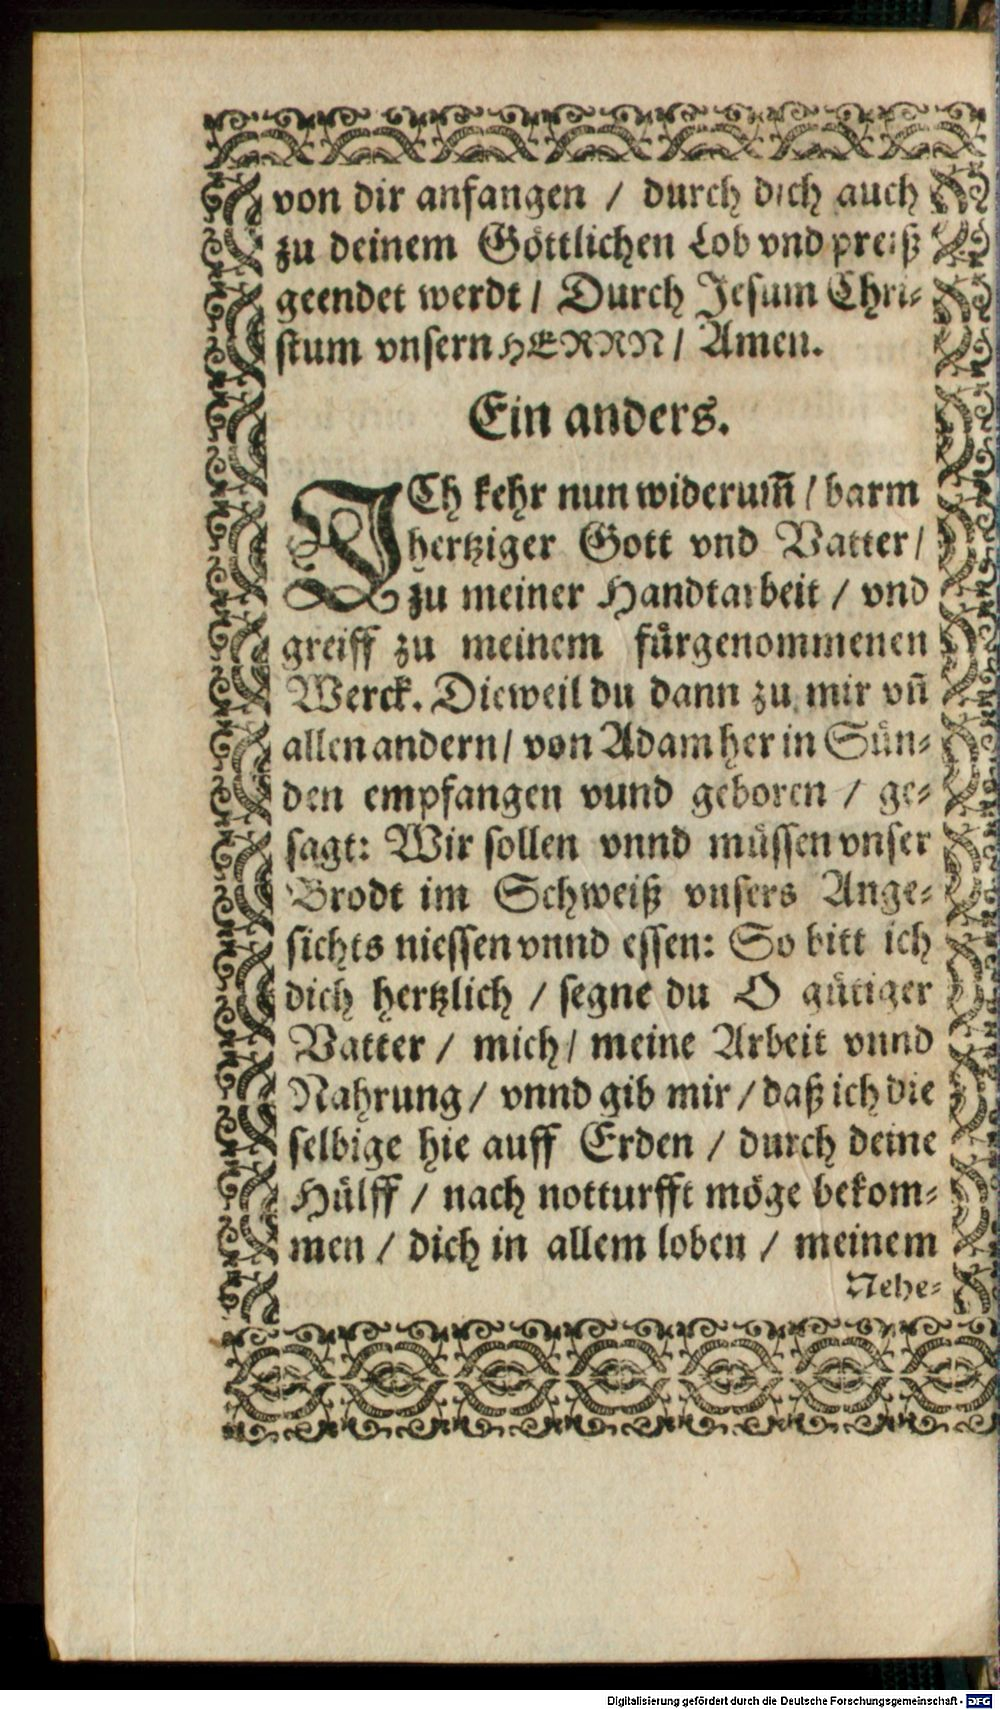 von dir anfangen / durch dich auch
zu deinem Göttlichen Lob vnd preiß
geendet werdt / Durch Jesum Chri-
stum vnsern HERRN / Amen.
Ein anders.
JCh kehr nun widerum̃ / barm
hertziger Gott vnd Vatter /
zu meiner Handtarbeit / vnd
greiff zu meinem fürgenommenen
Werck. Dieweil du dann zu mir vñ
allen andern / von Adam her in Sün-
den empfangen vund geboren / ge-
sagt: Wir sollen vnnd müssen vnser
Brodt im Schweiß vnsers Ange-
sichts niessen vnnd essen: So bitt ich
dich hertzlich / segne du O gütiger
Vatter / mich / meine Arbeit vnnd
Nahrung / vnnd gib mir / daß ich die
selbige hie auff Erden / durch deine
Hülff / nach notturfft möge bekom-
men / dich in allem loben / meinem
Nehe-
Digitalisierung gefördert durch die Deutsche Forschungsgemeinschaft - DFG